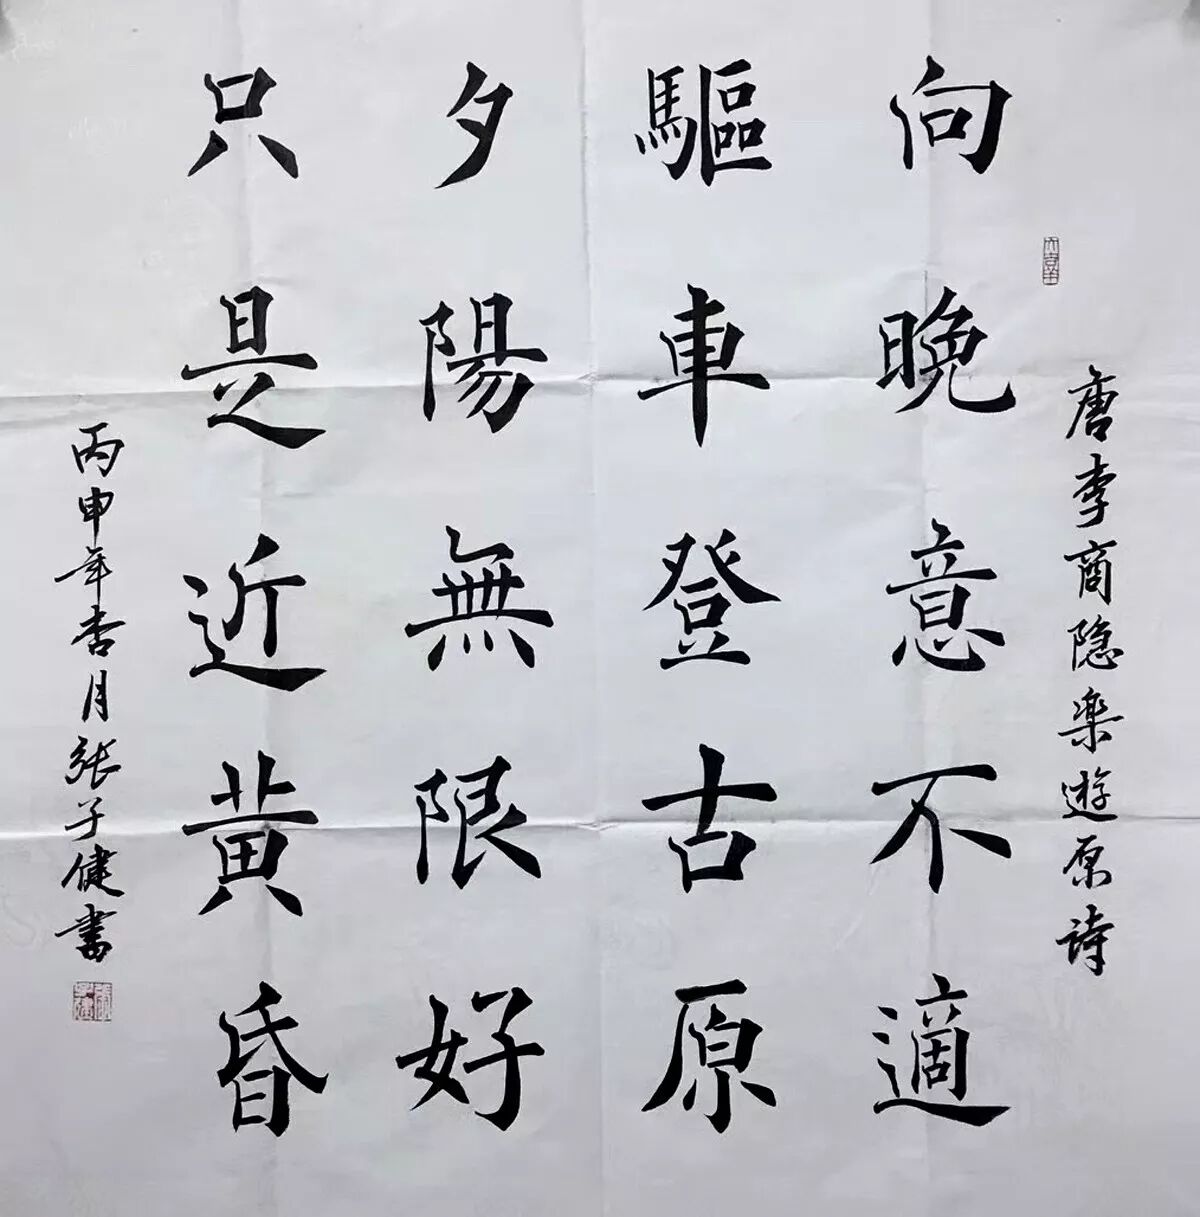 唐李商隐楽遊原詩
向晚意不適
驅車登古原
夕陽無限好
只是近黄昏
丙申年杏月張子健書